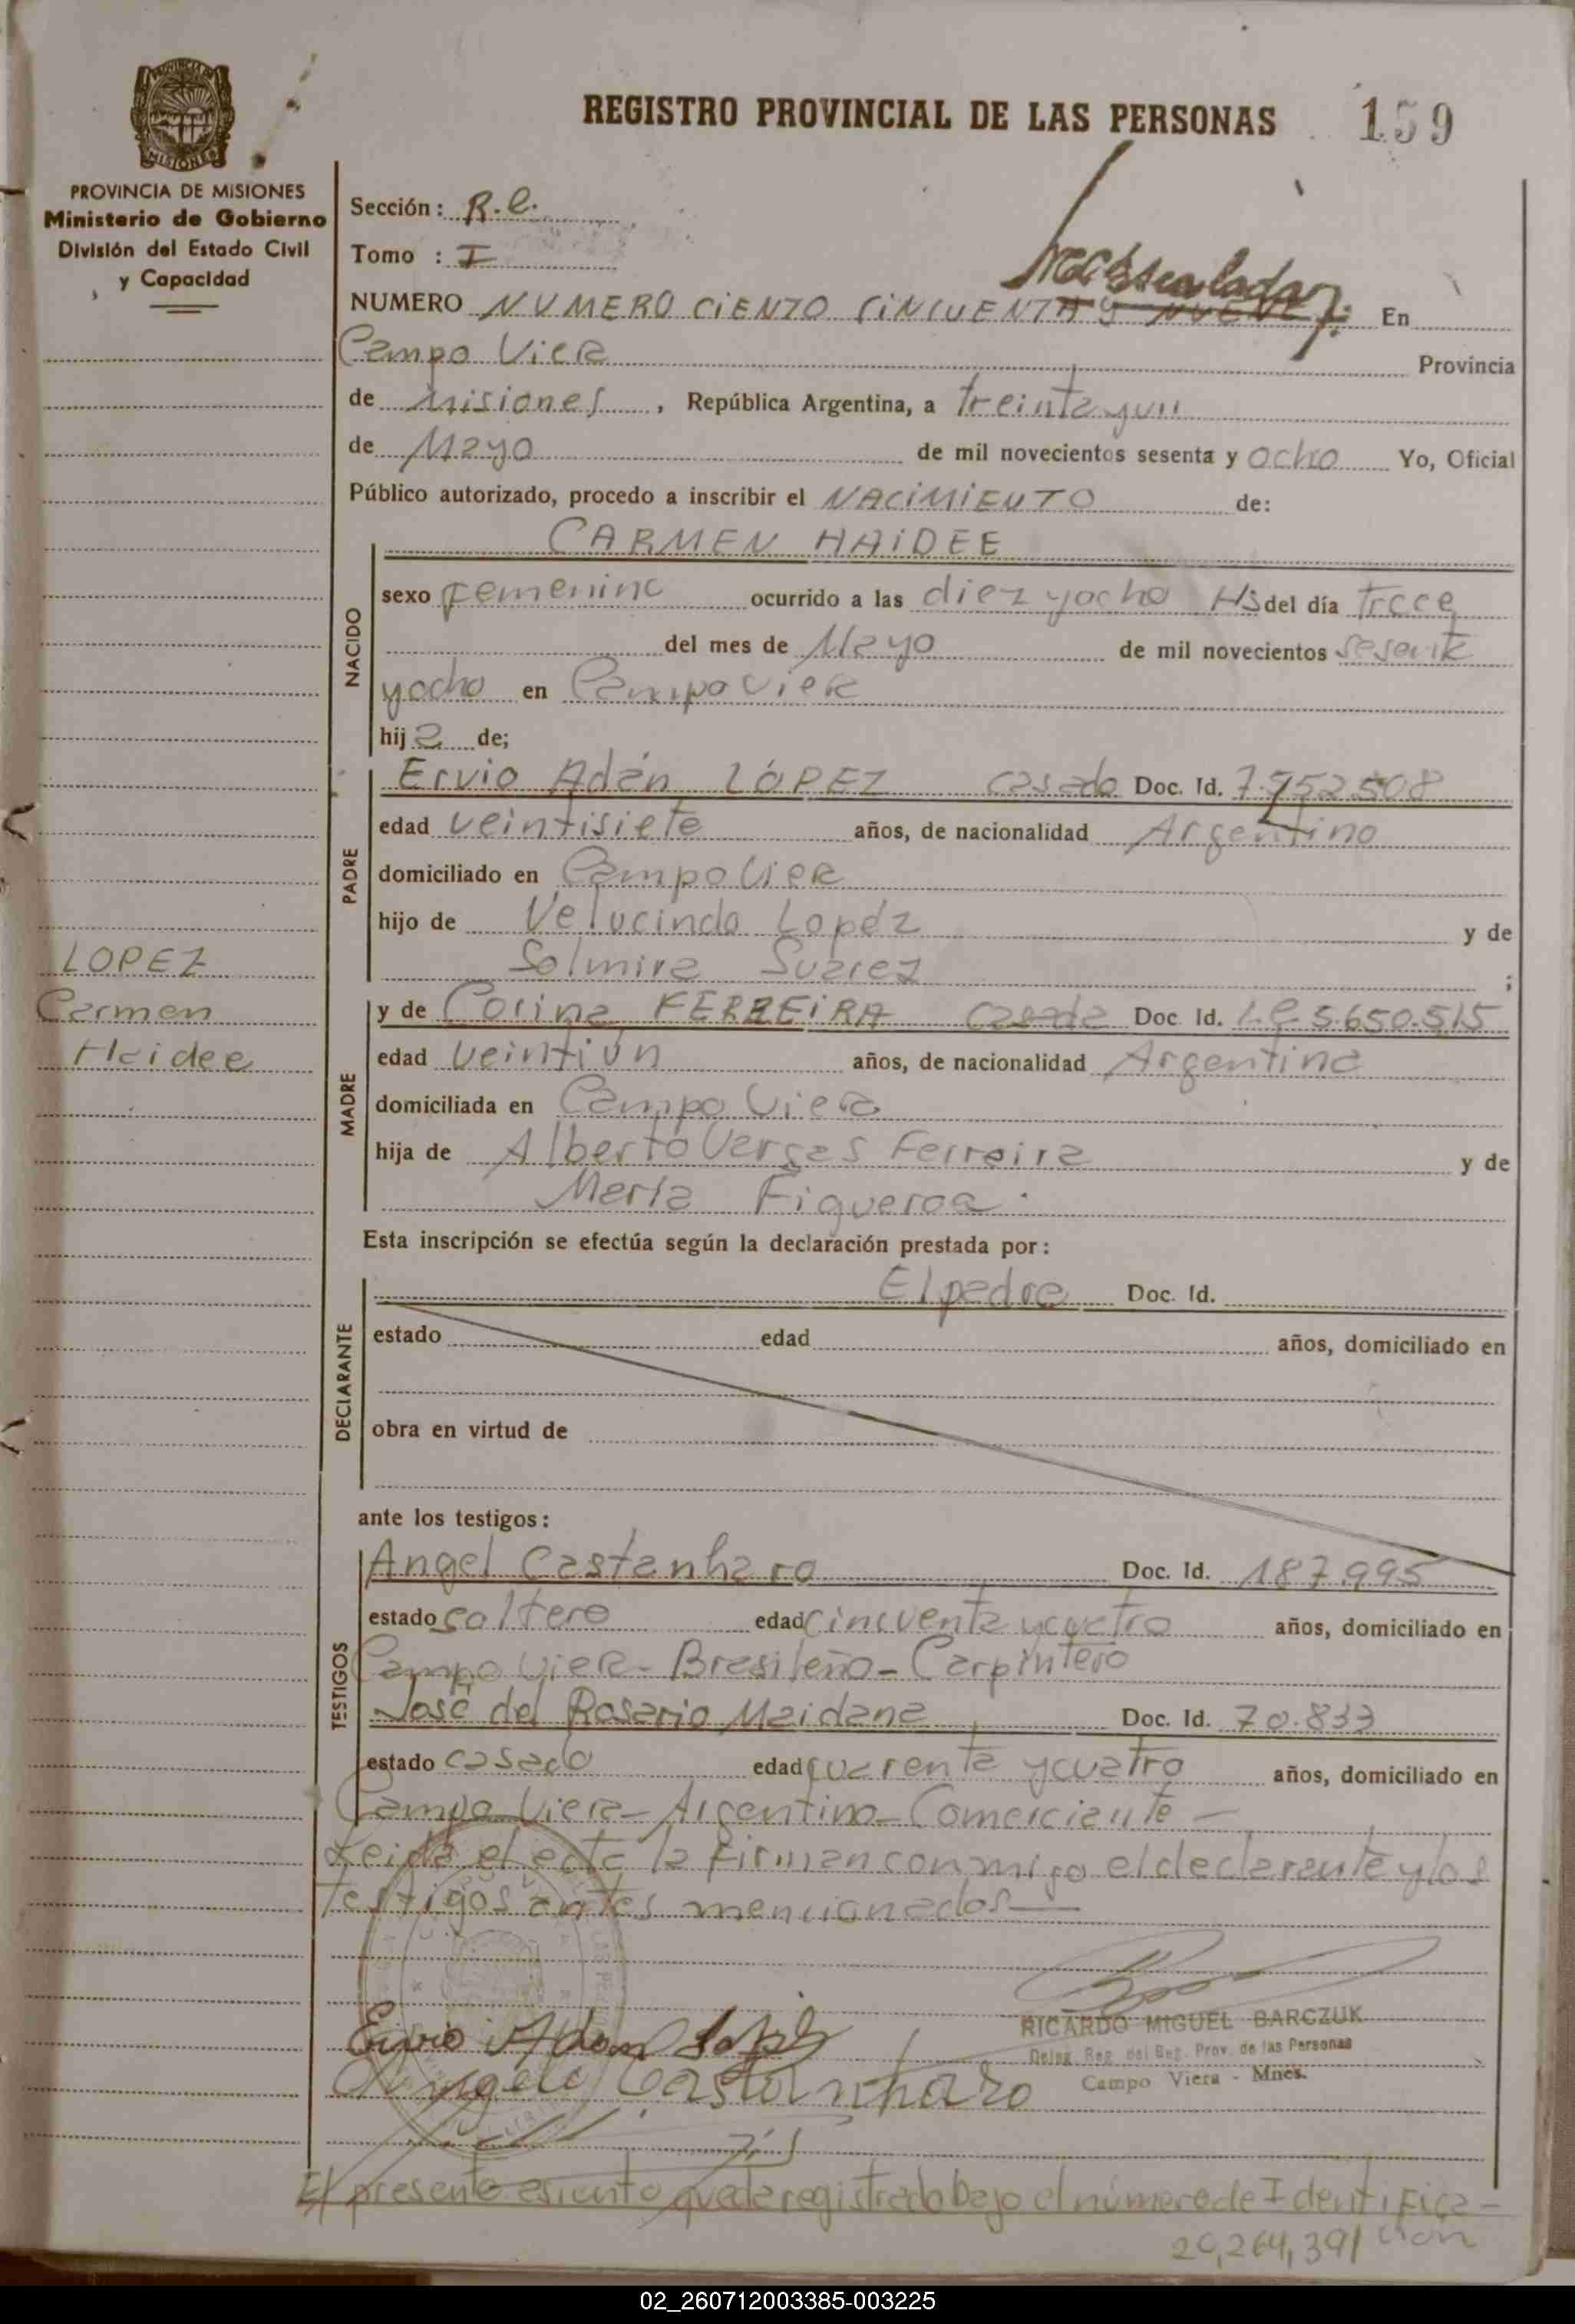 REGISTRO PROVINCIAL DE LAS PERSONAS 159
PROVINCIA DE MISIONES
Ministerio de Gobierno
División del Estado Civil
y Capacidad
Sección: R.C.
Tomo : I
NUMERO NUMERO CIENTO CINCUENTA Y NUEVE En
Campo Viera Provincia
de Misiones, República Argentina, a treinta y un
de Mayo de mil novecientos sesenta y ocho Yo, Oficial
Público autorizado, procedo a inscribir el NACIMIENTO de:
NACIDO
CARMEN HAIDEE
sexo femenino ocurrido a las diez y ocho Hs del día trece
del mes de Mayo de mil novecientos sesenta
y ocho en Campo Viera
hija de;
PADRE
Ervio Adán LÓPEZ casado Doc. Id. 7.952.508
edad veintisiete años, de nacionalidad Argentino
domiciliado en Campo Viera
hijo de Velucindo Lopez y de
Solmira Suarez ;
LOPEZ
Carmen
Haidee
MADRE
y de Corina FERREIRA casada Doc. Id. L.C 5.650.515
edad veintiún años, de nacionalidad Argentina
domiciliada en Campo Viera
hija de Alberto Vargas Ferreira y de
María Figueroa.
Esta inscripción se efectúa según la declaración prestada por:
DECLARANTE
El padre Doc. Id.
estado edad años, domiciliado en
obra en virtud de
ante los testigos:
TESTIGOS
Angel Castanharo Doc. Id. 187.995
estado soltero edad cincuenta y cuatro años, domiciliado en
Campo Viera - Brasileño - Carpintero
José del Rosario Maidana Doc. Id. 70.833
estado casado edad cuarenta y cuatro años, domiciliado en
Campo Viera - Argentino - Comerciante -
Leida el acta la firman conmigo el declarante y los
testigos antes mencionados
Ervio Adan Lopez
Angelo Castanharo
RICARDO MIGUEL BARCZUK
Deleg. Reg. del Reg. Prov. de las Personas
Campo Viera - Mnes.
El presente asiento queda registrado bajo el número de Identifica-
cion
20,264,391
02_260712003385-003225